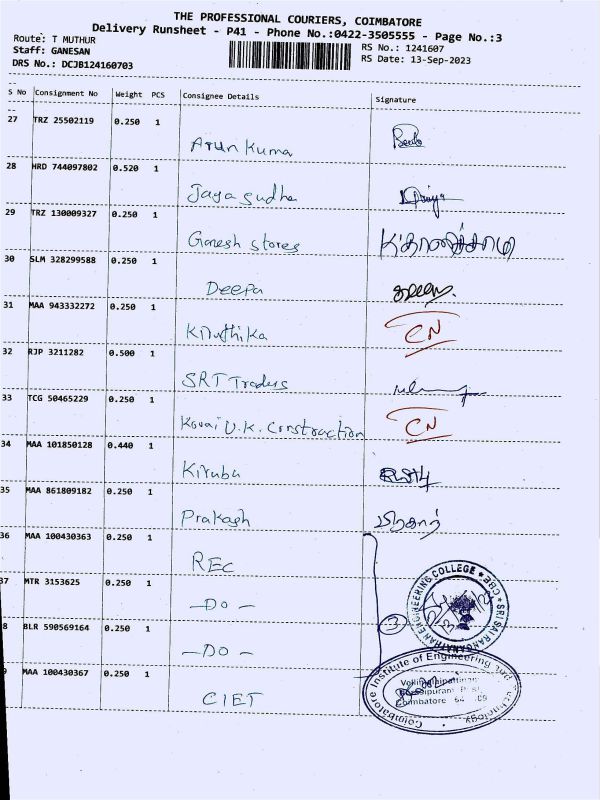 THE PROFESSIONAL COURIERS, COIMBATORE
Delivery Runsheet - P41 - Phone No.:0422-3505555 - Page No.:3
Route: T MUTHUR
RS No.: 1241607
Staff: GANESAN
RS Date: 13-Sep-2023
DRS No.: DCJB124160703
S No Consignment No Weight PCS Consignee Details Signature
27 TRZ 25502119 0.250 1
Arun Kuma
28 HRD 744097802 0.520 1
Jaya sudha
29 TRZ 130009327 0.250 1
Ganesh Stores
30 SLM 328299588 0.250 1
Deepa
31 MAA 943332272 0.250 1
Kiruthika CN
32 RJP 3211282 0.500 1
SRT Traders
33 TCG 50465229 0.250 1
Kovai U.K. Construction CN
34 MAA 101850128 0.440 1
Kiruba
35 MAA 861809182 0.250 1
Prakash
36 MAA 100430363 0.250 1
REC
37 MTR 3153625 0.250 1
- DO -
8 BLR 590569164 0.250 1
3
- DO -
9 MAA 100430367 0.250 1
CIET
SRI SAI RANGANATHAN ENGINEERING COLLEGE * CBE *
Coimbatore Institute of Engineering and Technology
Coimbatore